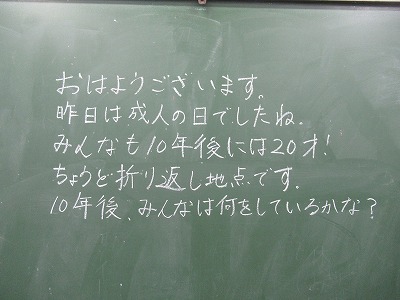 おはようございます。
昨日は成人の日でしたね.
みんなも10年後には20才!
ちょうど折り返し地点です.
10年後、みんなは何をしているかな?